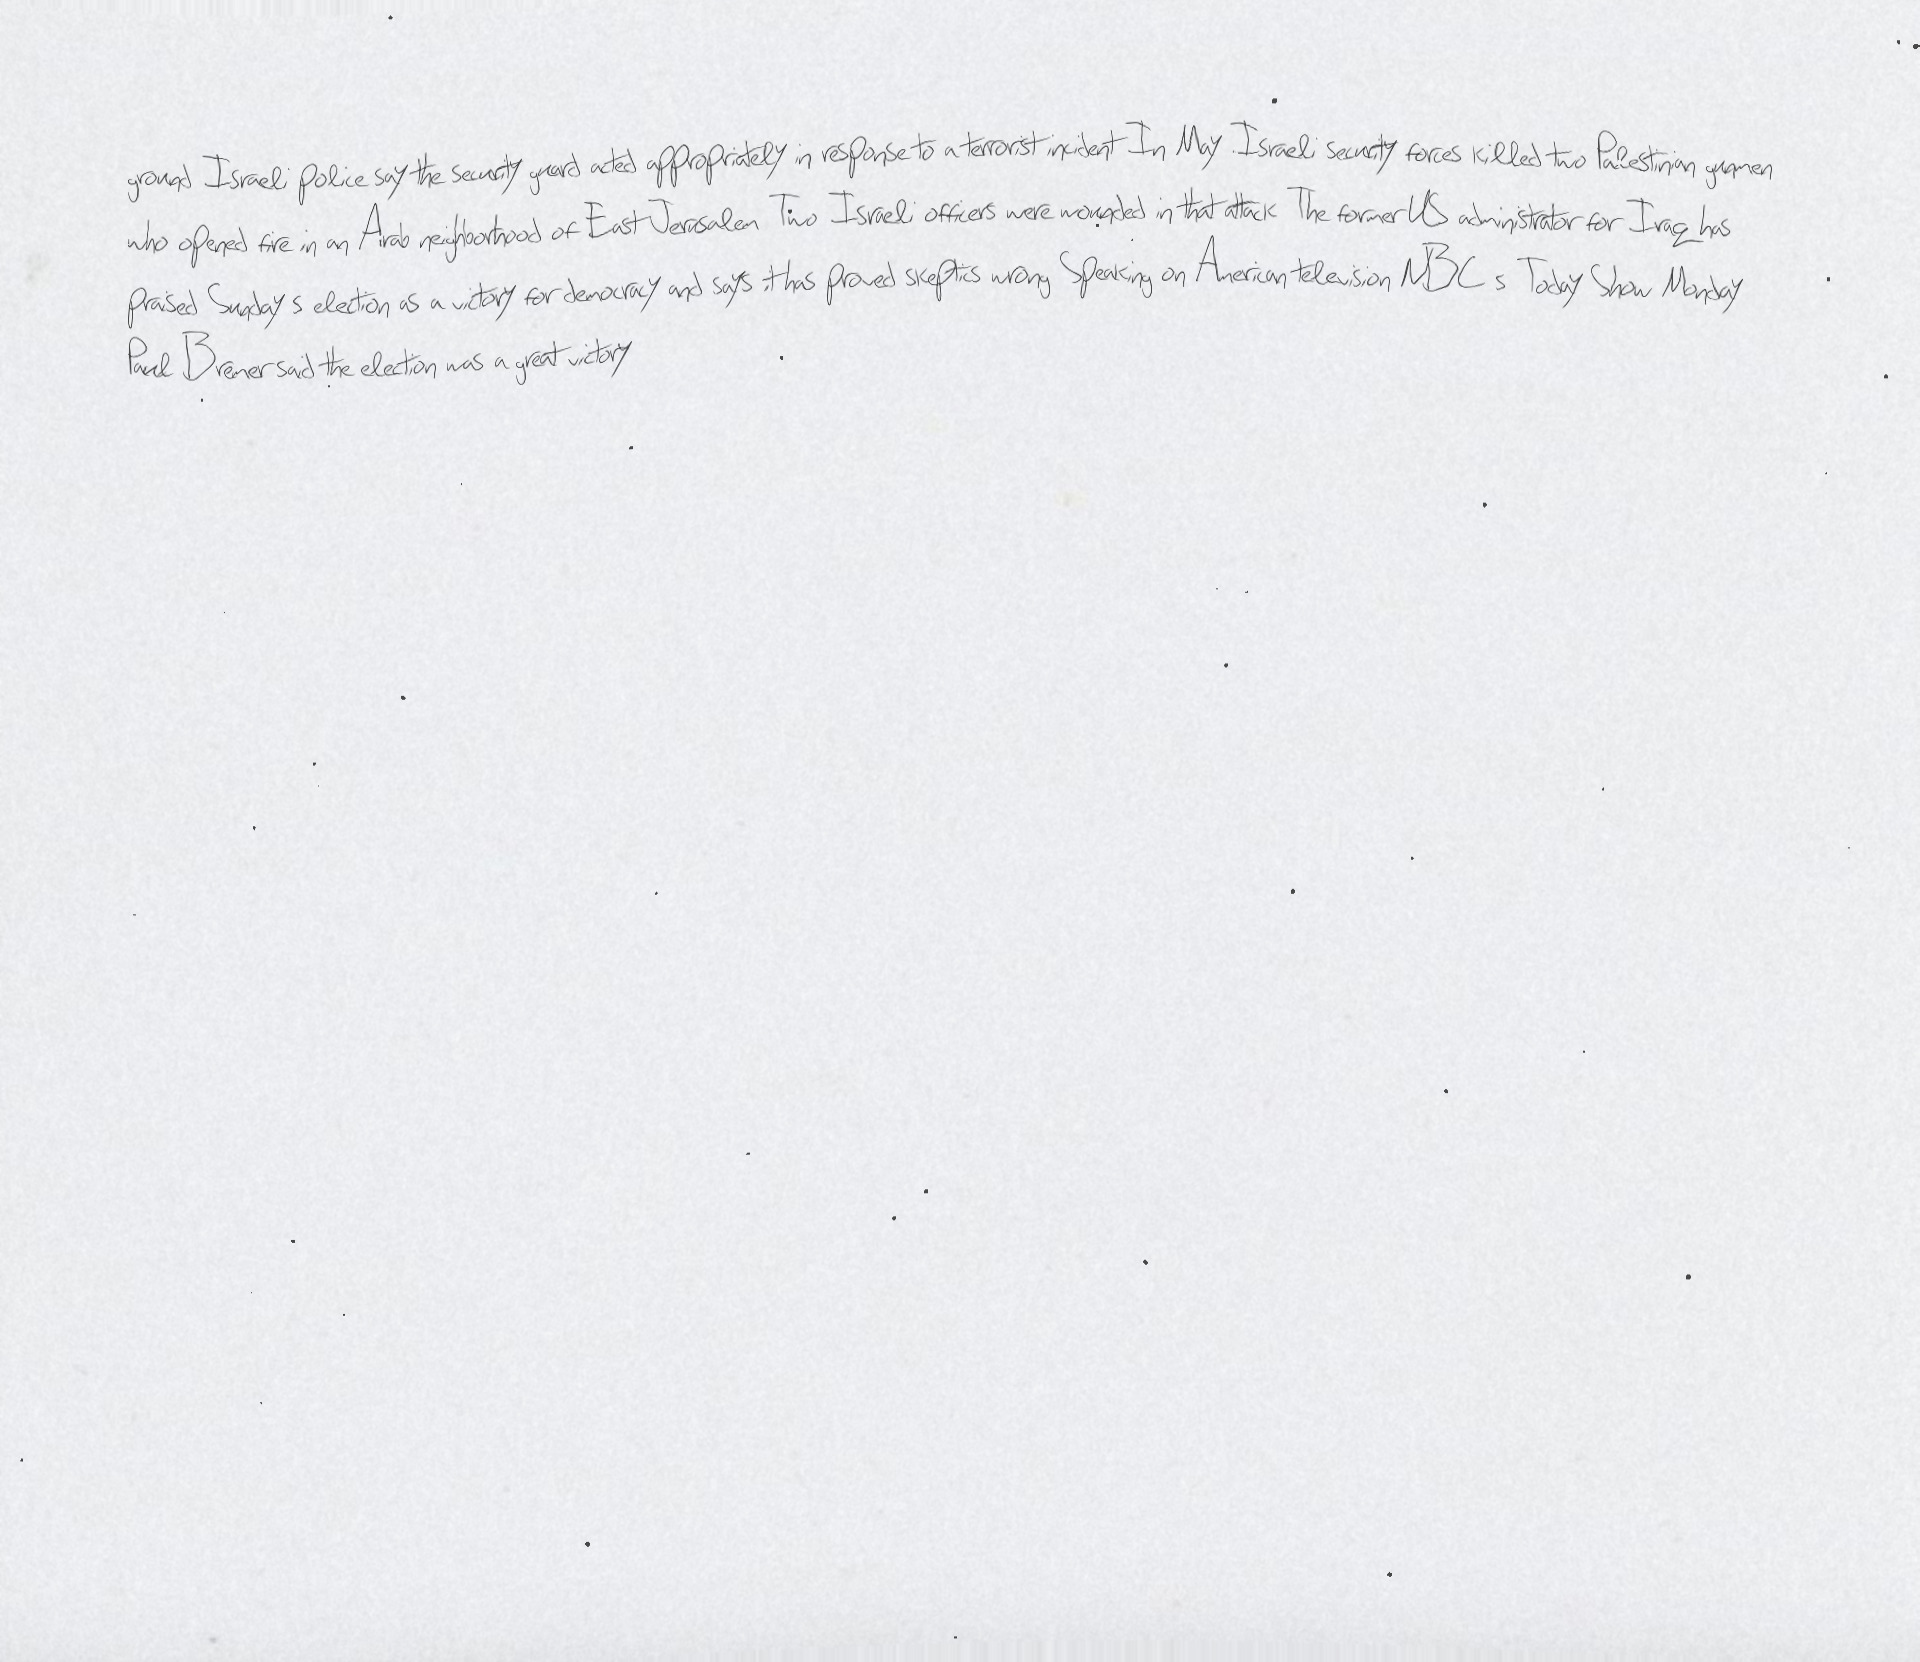 ground Israeli police say the security guard acted appropriately in response to a terrorist incident In May Israeli security forces killed two Palestinian gunmen
who opened fire in an Arab neighborhood of East Jerusalem Two Israeli officers were wounded in that attack The former US administrator for Iraq has
praised Sunday s election as a victory for democracy and says it has proved skeptics wrong Speaking on American television NBC s Today Show Monday
Paul Bremer said the election was a great victory